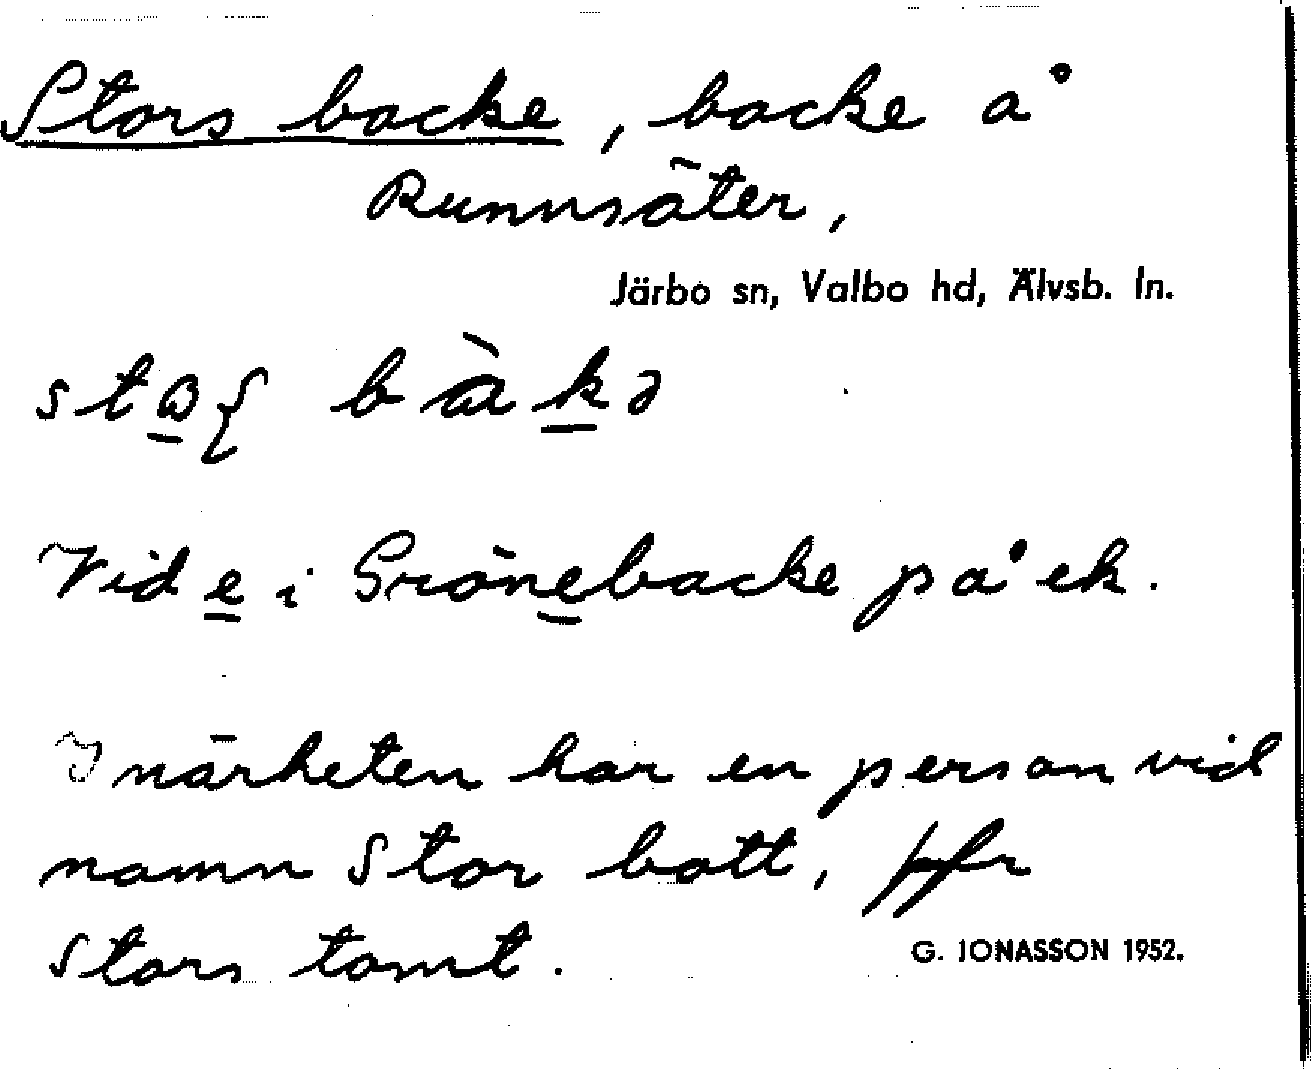 Stors backe, backe å
Runnsäter,
Järbo sn, Valbo hd, Älvsb. ln.
bàkə
Vid e i Grönebacke på ek.
I närheten har en person vid
namn Stor bott, jfr
Stors tomt.
G. JONASSON 1952.